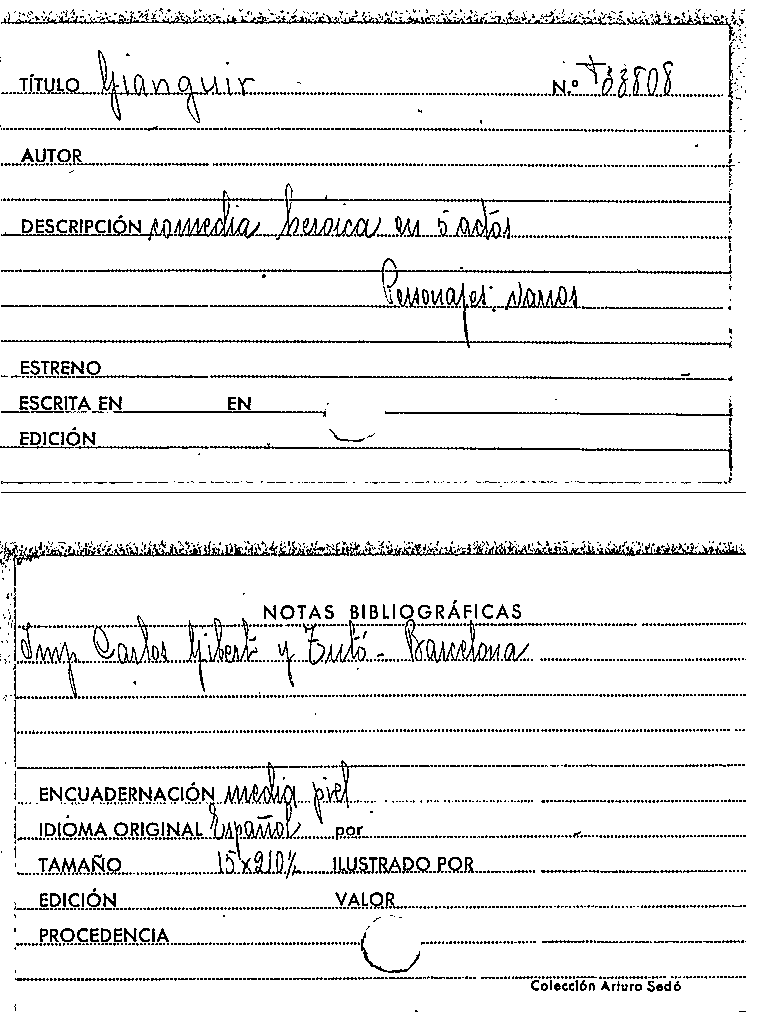 TÍTULO Gianguir N.º 33808
AUTOR
DESCRIPCIÓN comedia heroica en 5 actos
Personajes: varios
ESTRENO
ESCRITA EN EN
EDICIÓN
NOTAS BIBLIOGRÁFICAS
Imp Carlos Gibert y Tutó - Barcelona
ENCUADERNACIÓN media piel
IDIOMA ORIGINAL Español por
TAMAÑO ILUSTRADO POR
EDICIÓN VALOR
PROCEDENCIA
Colección Arturo Sedó